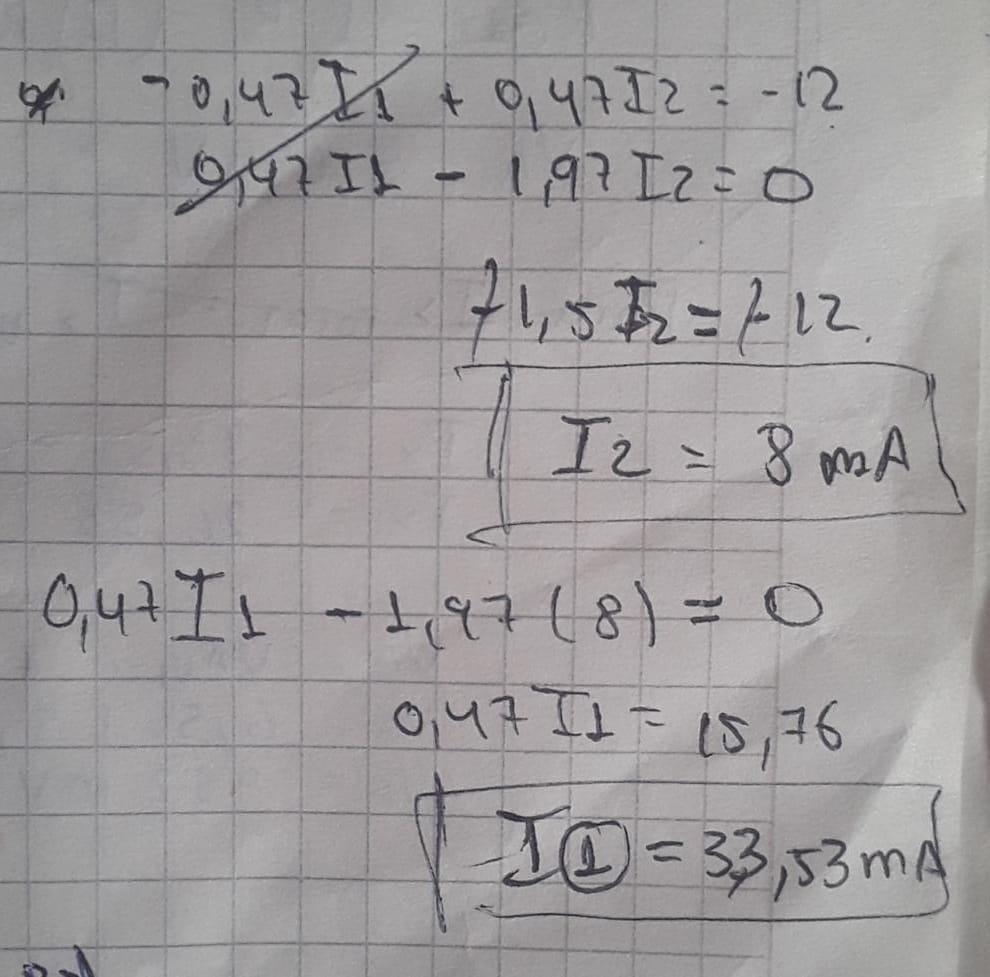 - 0,47 I1 + 0,47 I2 = -12
0,47 I1 - 1,97 I2 = 0
-1,5 I2 = -12.
I2 = 8 mA
0,47 I1 - 1,97 (8) = 0
0,47 I1 = 15,76
I1 = 33,53 mA